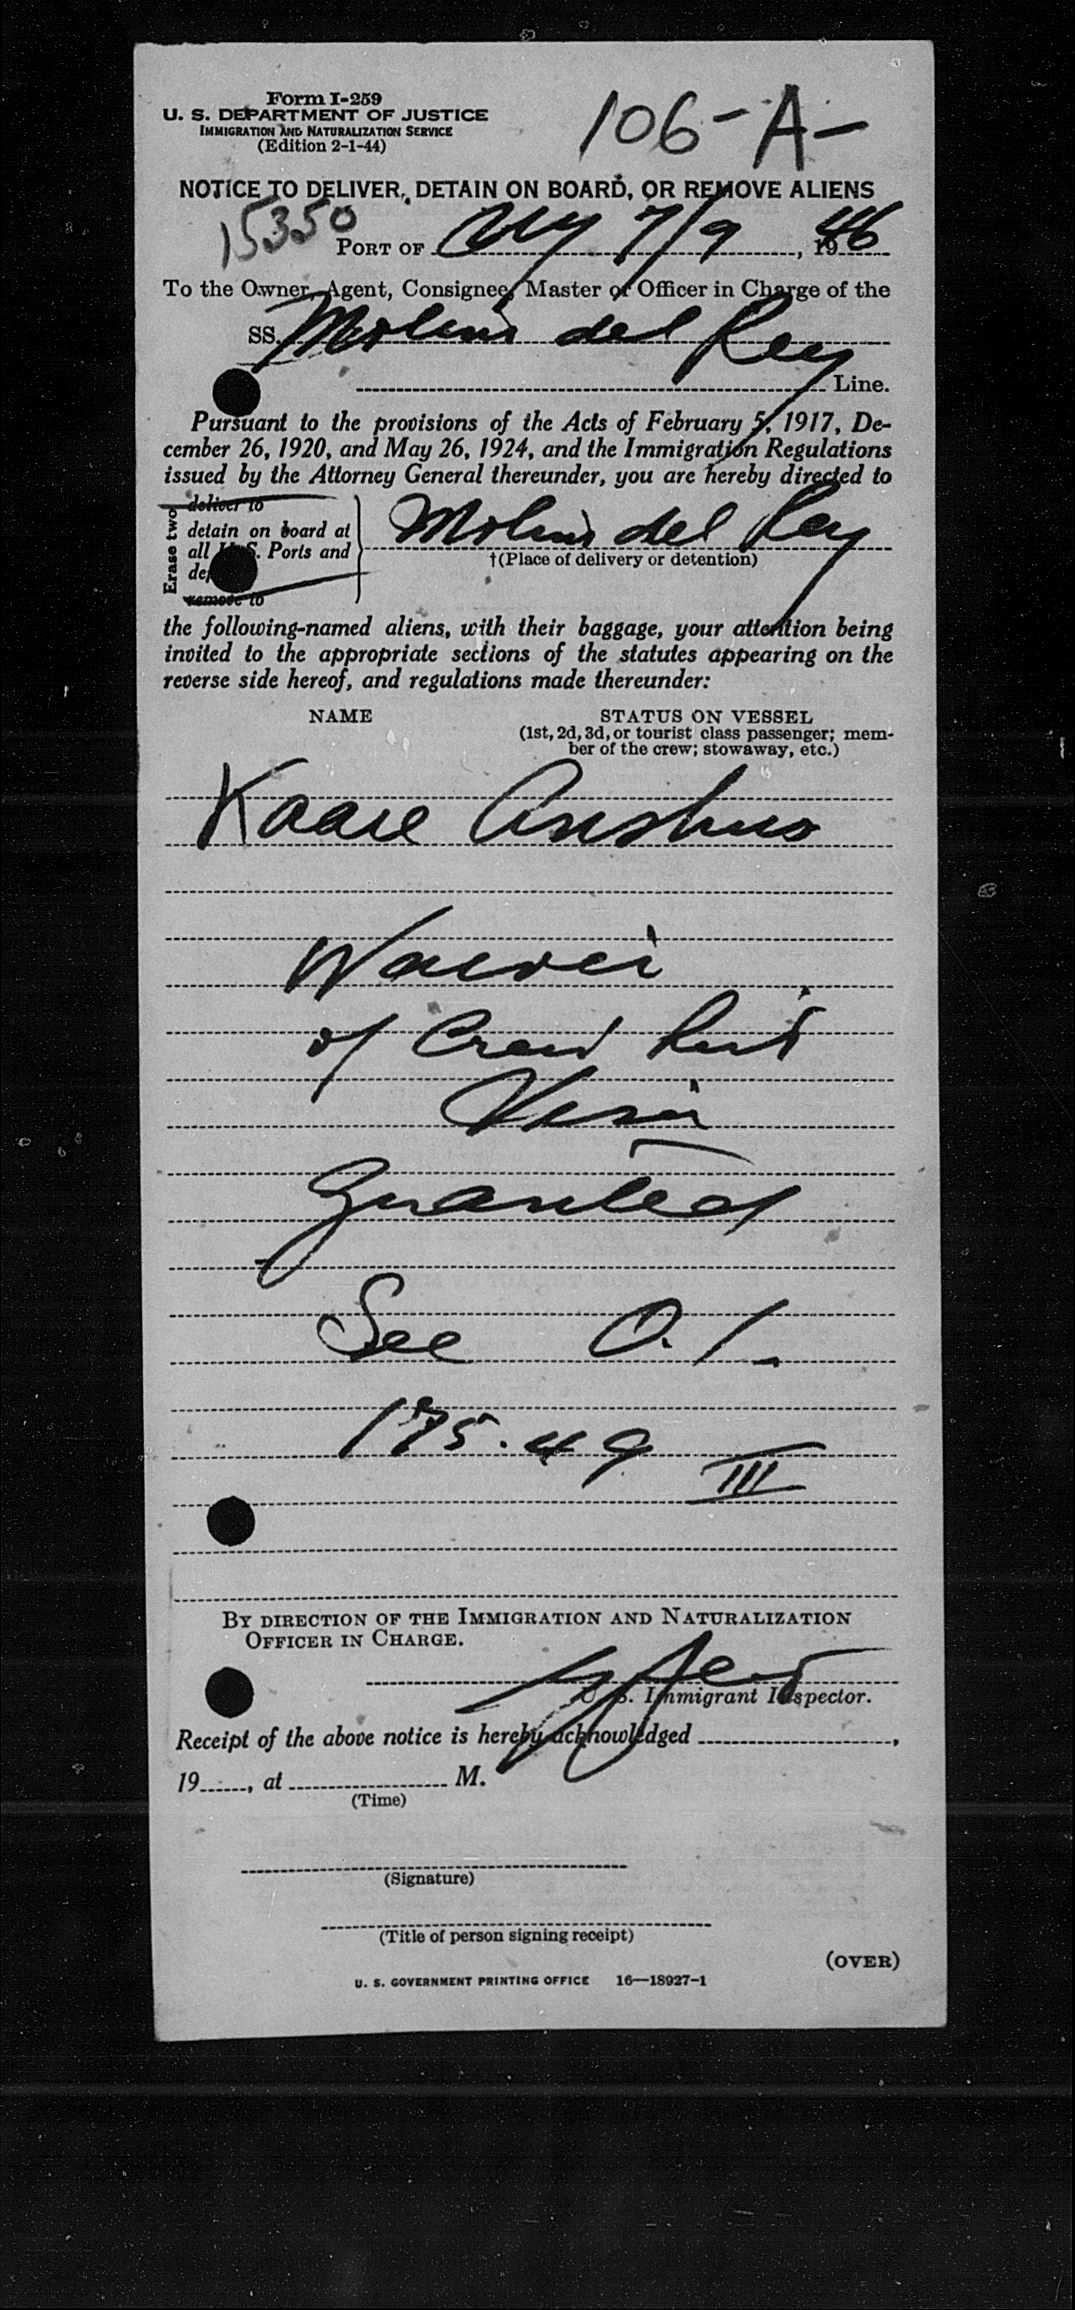 Form I-259
U. S. DEPARTMENT OF JUSTICE
IMMIGRATION AND NATURALIZATION SERVICE
(Edition 2-1-44)
106-A-
NOTICE TO DELIVER, DETAIN ON BOARD, OR REMOVE ALIENS
15350
PORT OF NY 7/9, 1946
To the Owner, Agent, Consignee, Master or Officer in Charge of the
SS. Molino del Rey
Line.
Pursuant to the provisions of the Acts of February 5, 1917, De-
cember 26, 1920, and May 26, 1924, and the Immigration Regulations
issued by the Attorney General thereunder, you are hereby directed to
Erase two
deliver to
detain on board at
all U.S. Ports and
remove to
Molino del Rey
†(Place of delivery or detention)
the following-named aliens, with their baggage, your attention being
invited to the appropriate sections of the statutes appearing on the
reverse side hereof, and regulations made thereunder:
NAME
STATUS ON VESSEL
(1st, 2d, 3d, or tourist class passenger; mem-
ber of the crew; stowaway, etc.)
Kaare
Waiver
of Crew list
Visa
Granted
See O.I.
175.49
III
BY DIRECTION OF THE IMMIGRATION AND NATURALIZATION
OFFICER IN CHARGE.
U. S. Immigrant Inspector.
Receipt of the above notice is hereby acknowledged ,
19 , at M.
(Time)
(Signature)
(Title of person signing receipt)
(OVER)
U. S. GOVERNMENT PRINTING OFFICE 16—18927-1